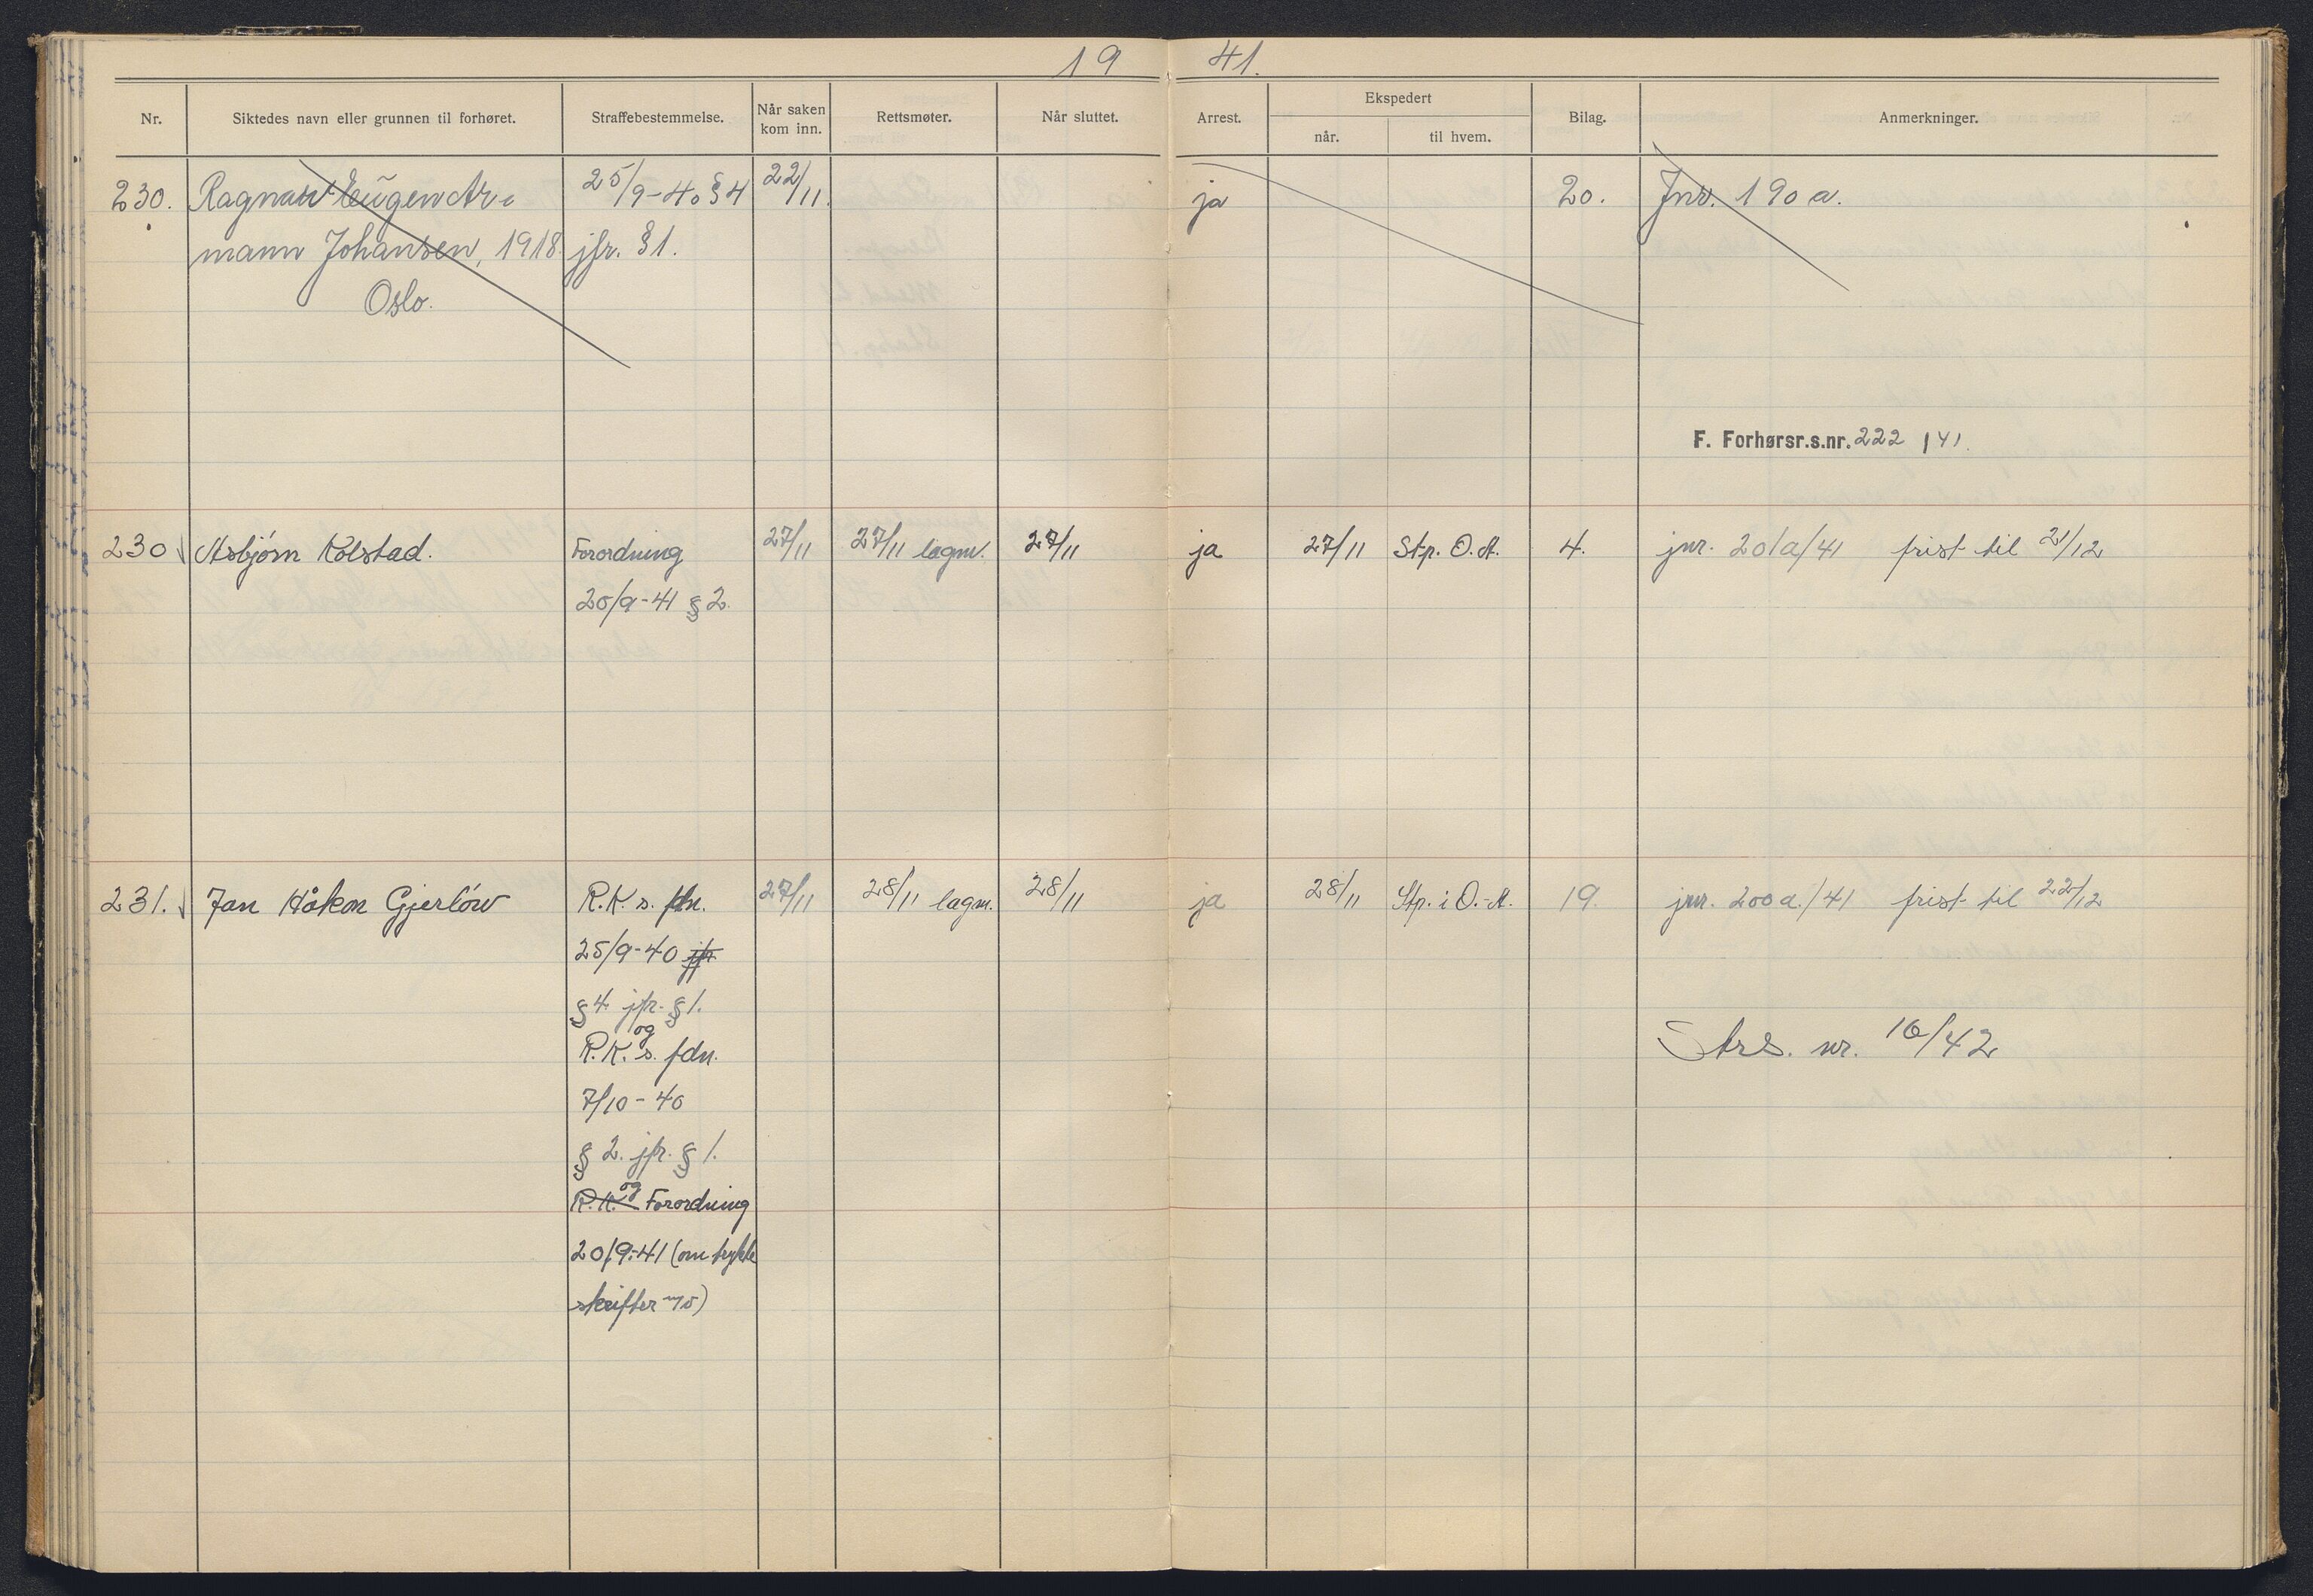 19 41.
Nr. Siktedes navn eller grunnen til forhøret. Straffebestemmelse. Når saken kom inn. Rettsmøter. Når sluttet. Arrest. Ekspedert når. til hvem. Bilag. Anmerkninger.
230. Ragnar Eugen Ar- 25/9-40 § 4 22/11. ja 20. Jnr. 190 a.
mann Johansen, 1918. jfr. §1.
Oslo.
F. Forhørsr.s.nr. 222 /41.
230 Asbjørn Kolstad. Forordning 27/11 27/11 lagm. 27/11 ja 27/11 Stp. O.A. 4. jnr. 201a/41 frist til 21/12
20/9-41 § 2.
231. Jan Håkon Gjerløw R.K. s. fdn. 27/11 28/11 lagm. 28/11 ja 28/11 Stp. i O.-A. 19. jnr. 200a./41 frist til 22/12
25/9-40 jfr
§ 4 jfr. § 1.
og
R.K. s. fdn. Strs. nr. 16/42
7/10-40
§ 2. jfr. § 1.
R.K. og Forordning
20/9-41 (om trykte
skrifter